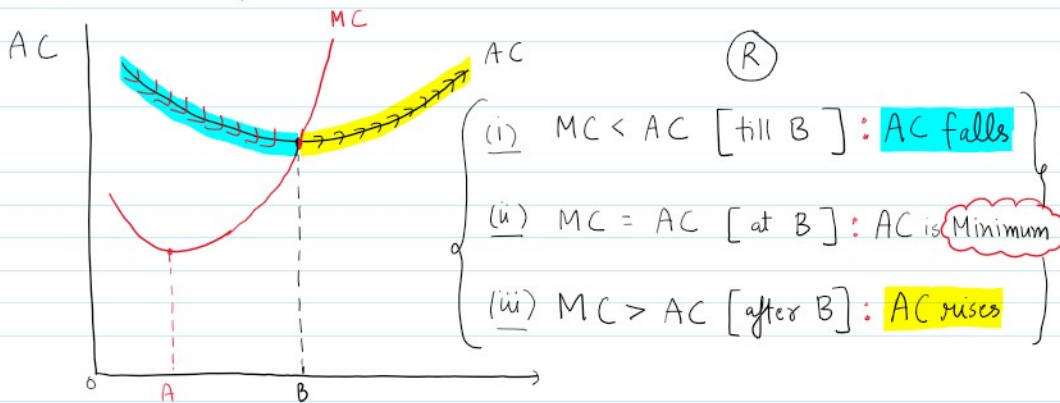 MC
AC
AC
R
(i) MC < AC [till B] : AC falls
(ii) MC = AC [at B] : AC is Minimum
(iii) MC > AC [after B] : AC rises
0
A
B